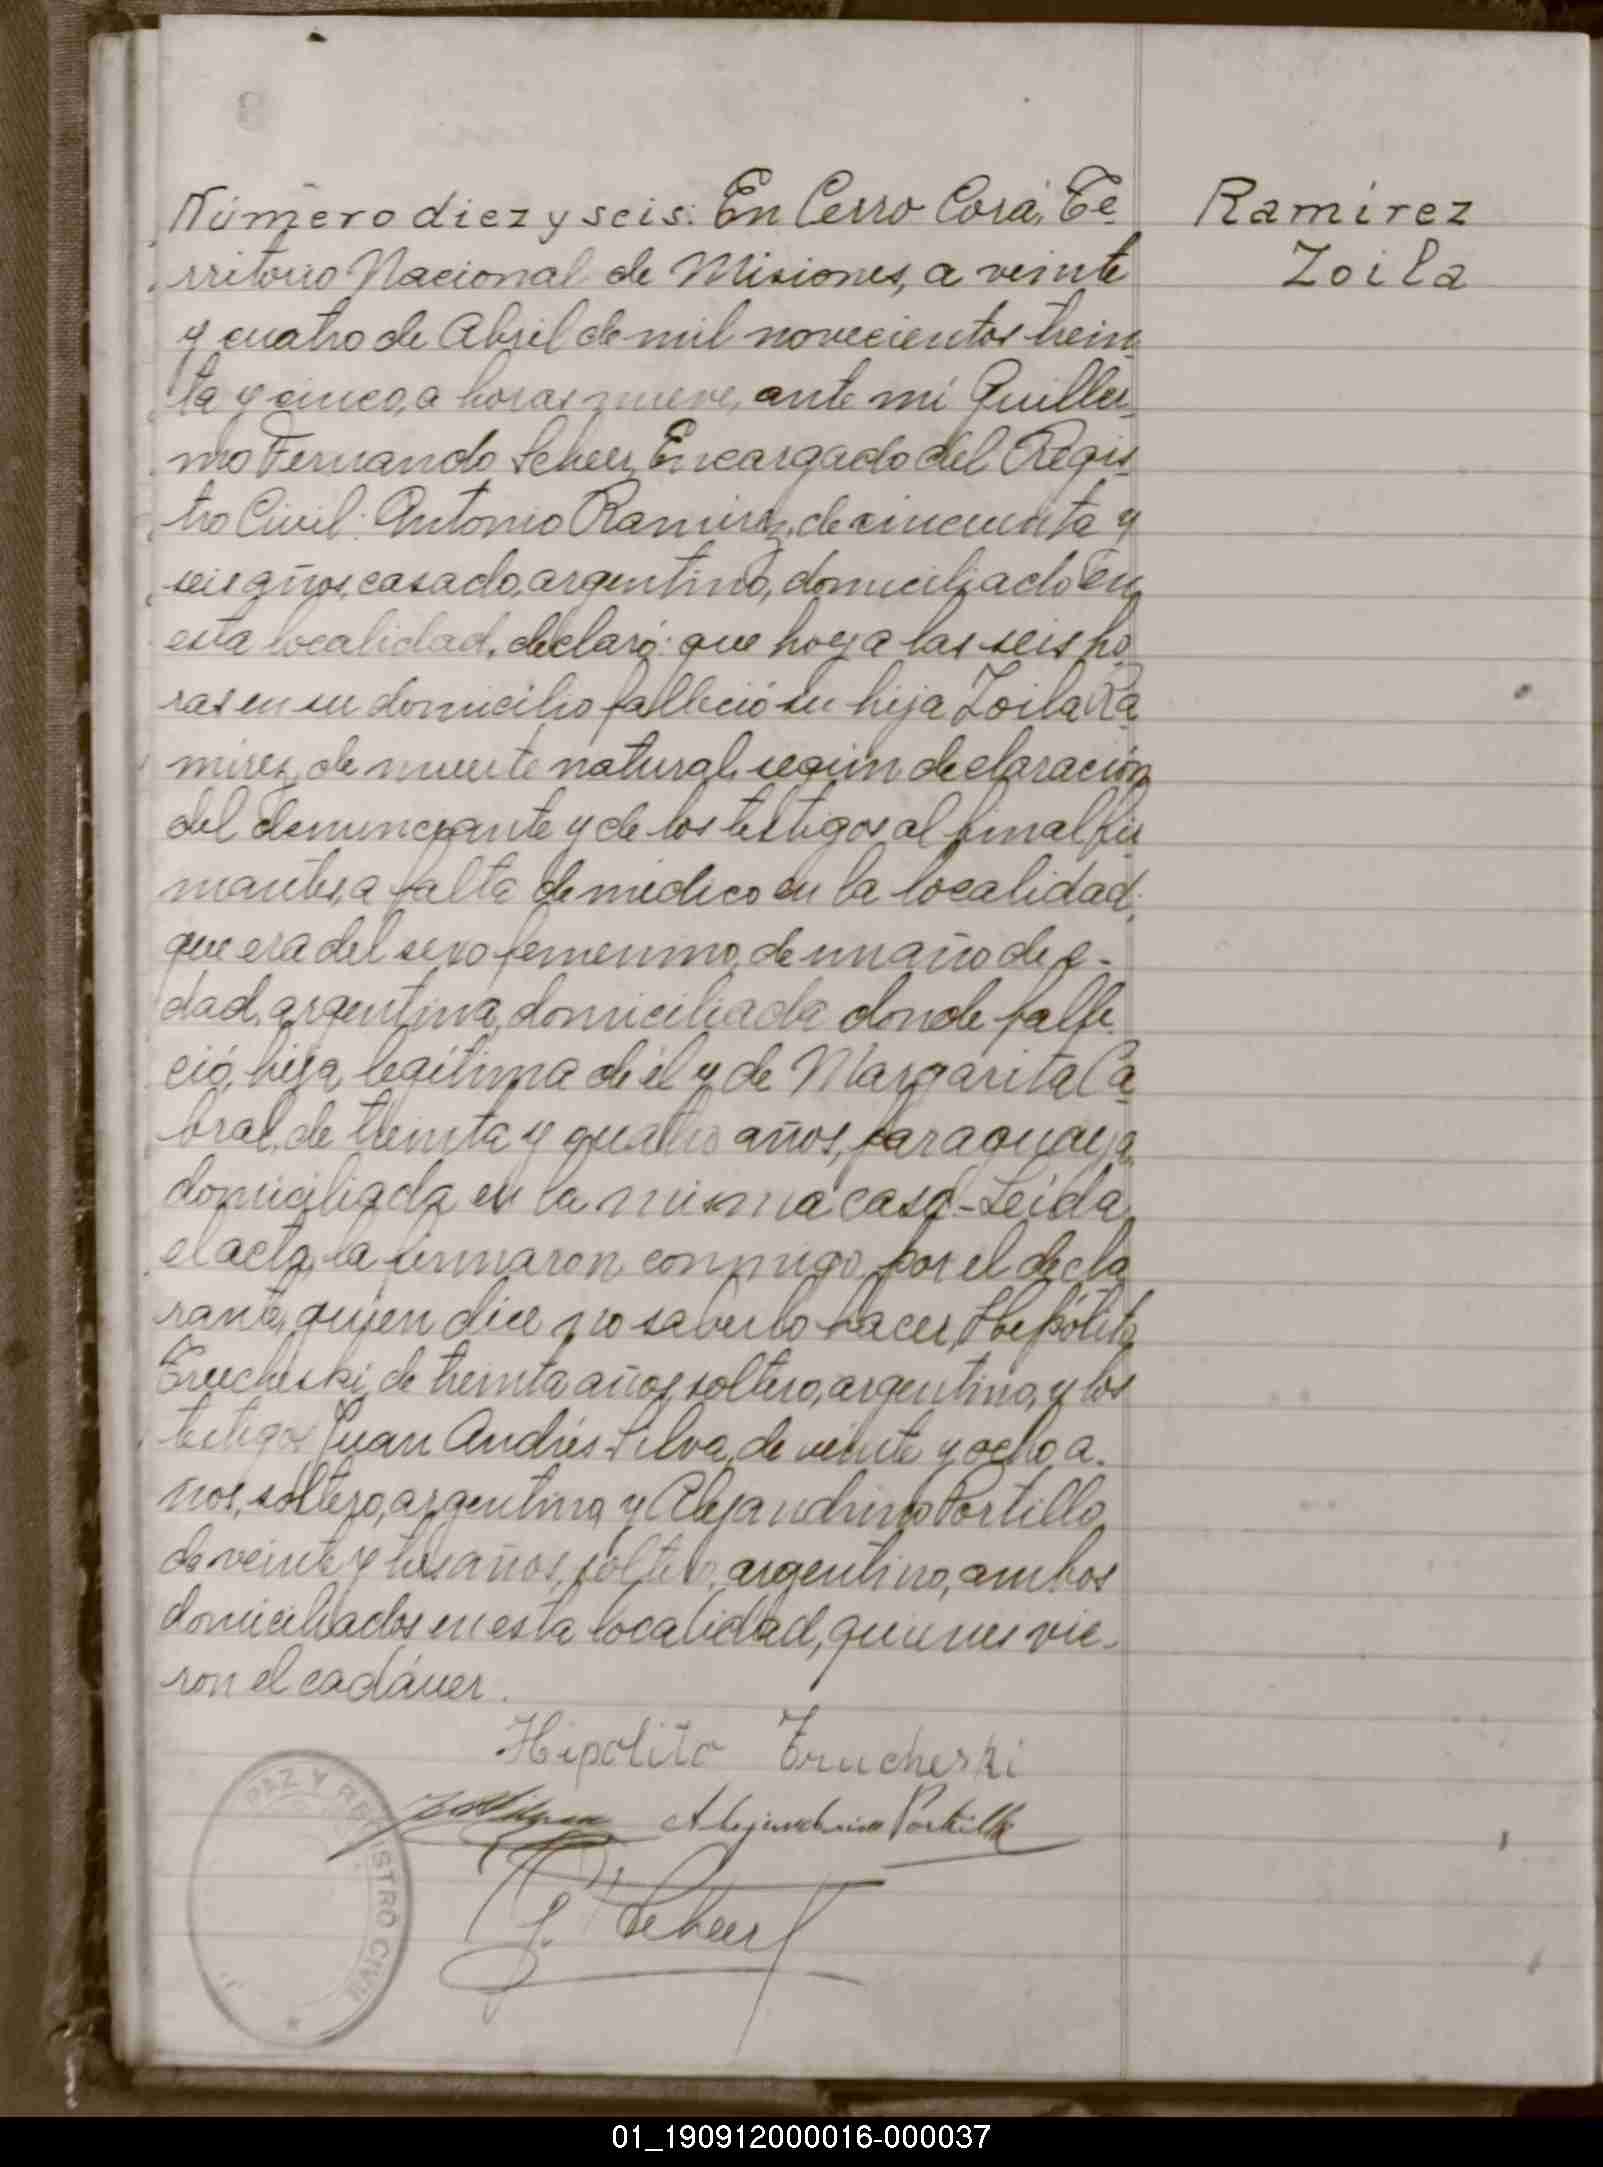 Número diez y seis: En Cerro Corá, Te-
rritorio Nacional de Misiones, a veinte
y cuatro de Abril de mil novecientos trein-
ta y cinco, a horas nueve, ante mí Guiller-
mo Fernando Scheer, Encargado del Regis-
tro Civil: Antonio Ramirez, de cincuenta y
seis años, casado, argentino, domiciliado en
esta localidad, declaró: que hoy a las seis ho-
ras en su domicilio falleció su hija Zoila Ra-
mirez, de muerte natural, según declaración
del denunciante y de los testigos al final fir-
mantes, a falta de médico en la localidad;
que era del sexo femenino, de un año de e-
dad, argentina, domiciliada donde falle-
ció, hija legítima de él y de Margarita Ca-
bral, de treinta y cuatro años, paraguaya,
domiciliada en la misma casa - Leída
el acta, la firmaron conmigo, por el decla-
rante, quien dice no saberlo hacer, Hipólito
Trucheski, de treinta años, soltero, argentino, y los
testigos Juan Andrés Silva, de veinte y ocho a-
ños, soltero, argentino, y Alejandrino Portillo,
de veinte y tres años, soltero, argentino, ambos
domiciliados en esta localidad, quienes vie-
ron el cadáver.
Ramírez
Zoila
Hipolito Trucheski
Alejandrino Portillo
G. F. Scheer
PAZ Y REGISTRO CIVIL
01_190912000016-000037